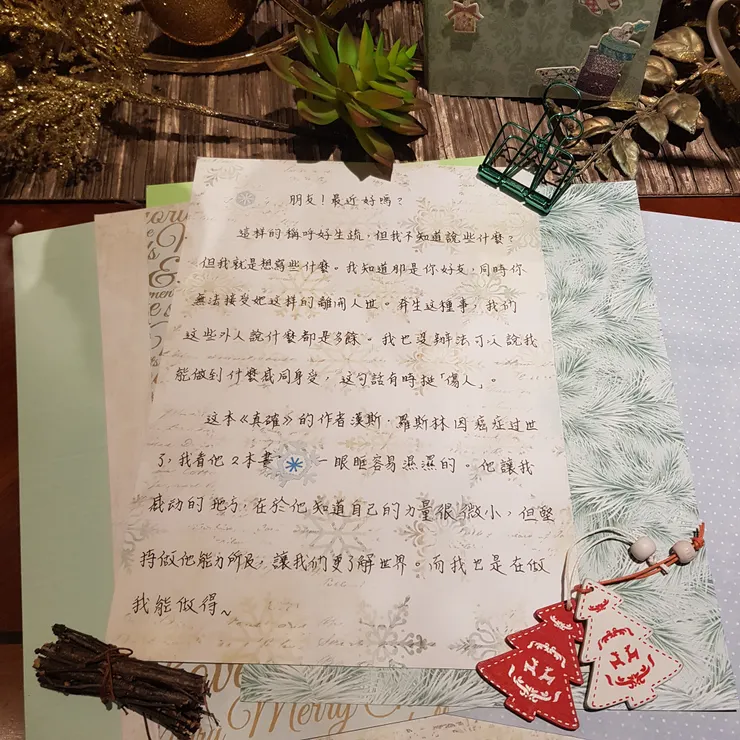 朋友！最近好嗎？
這样的稱呼好生疏，但我不知道說些什麼？
但我就是想寫些什麼。我知道那是你好友，同時你
無法接受她这样的離開人世。弃生这種事，我們
这些外人說什麼都是多餘。我也沒辦法可以說我
能做到什麼感同身受，这句話有時挺「傷人」。
这本《真確》的作者漢斯·羅斯林因癌症过世
了，我看他2本書 一眼眶容易濕濕的。他讓我
感动的地方，在於他知道自己的力量很微小，但堅
持做他能力所及，讓我們更了解世界。而我也是在做
我能做得~
ove
Merry